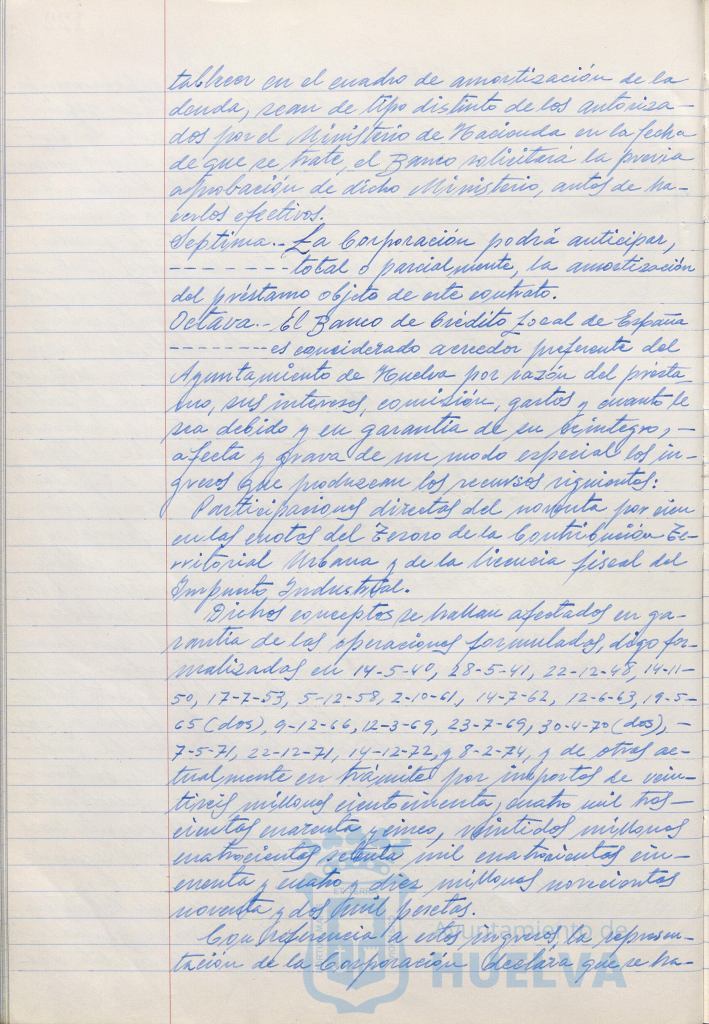 tablecer en el cuadro de amortización de la
deuda, sean de tipo distinto de los autoriza-
dos por el Ministerio de Hacienda en la fecha
de que se trate, el Banco solicitará la previa
aprobación de dicho Ministerio, antes de ha-
cerlos efectivos.
Septima.- La Corporación podrá anticipar,
------- total o parcialmente, la amortización
del préstamo objeto de este contrato.
Octava.- El Banco de Crédito Local de España
-------- es considerado acreedor preferente del
Ayuntamiento de Huelva por razón del présta-
mo, sus intereses, comisión, gastos y cuanto le
sea debido y en garantía de su reintegro, -
afecta y grava de un modo especial los in-
gresos que produzcan los recursos siguientes:
Participaciones directas del noventa por cien
en las cuotas del Tesoro de la Contribución Te-
rritorial Urbana y de la licencia fiscal del
Impuesto Industrial.
Dichos conceptos se hallan afectados en ga-
rantía de las operaciones formulados, digo for-
malizadas en 14-5-40, 28-5-41, 22-12-48, 14-11-
50, 17-7-53, 5-12-58, 2-10-61, 14-7-62, 12-6-63, 19-5-
65 (dos), 9-12-66, 12-3-69, 23-7-69, 30-4-70 (dos), -
7-5-71, 22-12-71, 14-12-72, y 8-2-74, y de otras ac-
tualmente en trámite por importes de vein-
tiseis millones ciento cincuenta, cuatro mil tres-
cientas cuarenta y cinco, veintidos millones
cuatrocientas setenta mil cuatrocientas cin-
cuenta y cuatro y diez millones novecientas
noventa y dos mil pesetas.
Con referencia a estos ingresos, la represen-
tación de la Corporación declara que se ha-
Ayuntamiento de
HUELVA